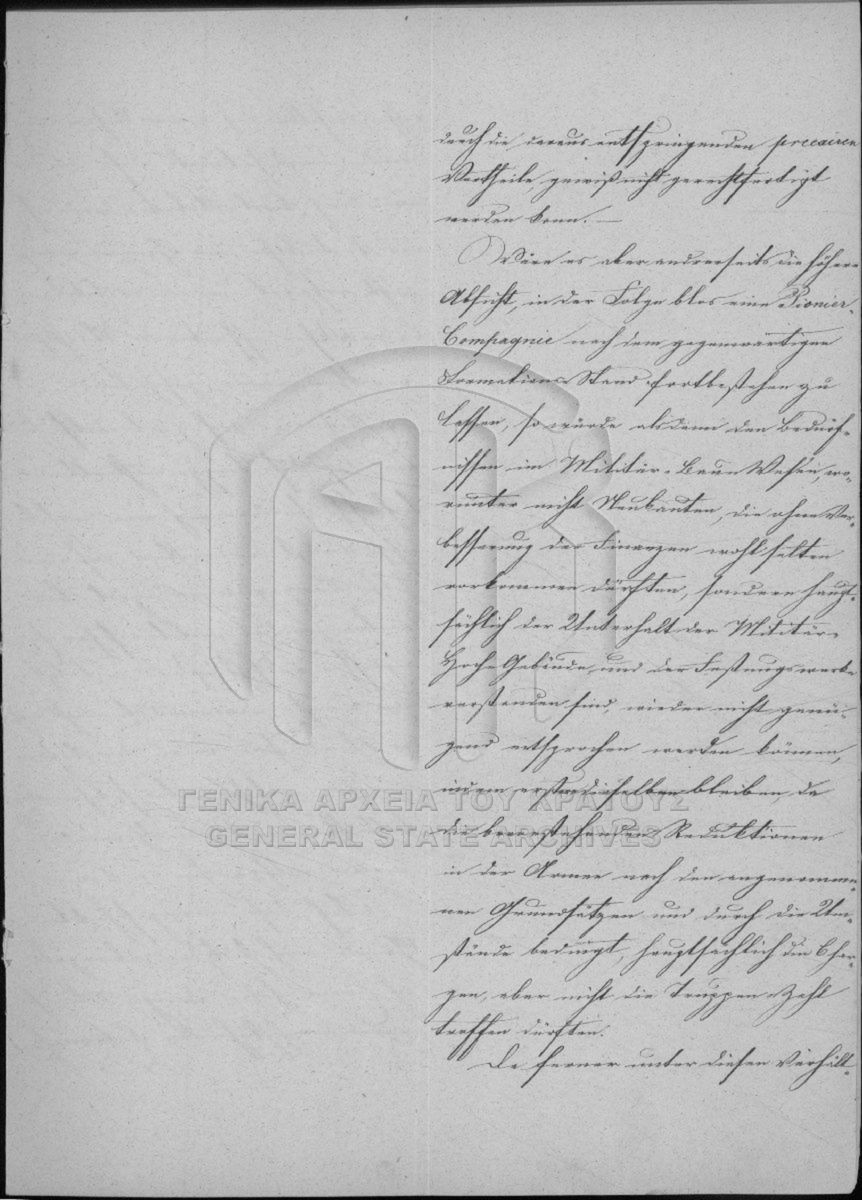 durch die daraus entspringenden precairen
Vortheile gewiß nicht gerechtfertigt
werden kann. —
Wäre es aber andrerseits die höhere
Absicht, in der Folge blos eine Pionier-
Compagnie nach dem gegenwärtigen
Formations-Stand fortbestehen zu
lassen, so würde alsdann den Bedürf-
nissen im Militär-Bau-Wesen, wo-
runter nicht Neubauten, die ohne Ver-
besserung der Finanzen wohl selten
vorkommen dürften, sondern haupt-
sächlich der Unterhalt der Militär-
Hoch-Gebäude und der Festungswerke
verstanden sind, wieder nicht genü-
gend entsprochen werden können,
indem dieselben bleiben, da
die bevorstehenden Reduktionen
in der Armee nach den angenomme-
nen Grundsätzen und durch die Um-
stände bedingt, hauptsächlich die Char-
gen, aber nicht die Truppen-Zahl
treffen dürften.
Da ferner unter diesen Verhält-
ΓΕΝΙΚΑ ΑΡΧΕΙΑ ΤΟΥ ΚΡΑΤΟΥΣ
GENERAL STATE ARCHIVES